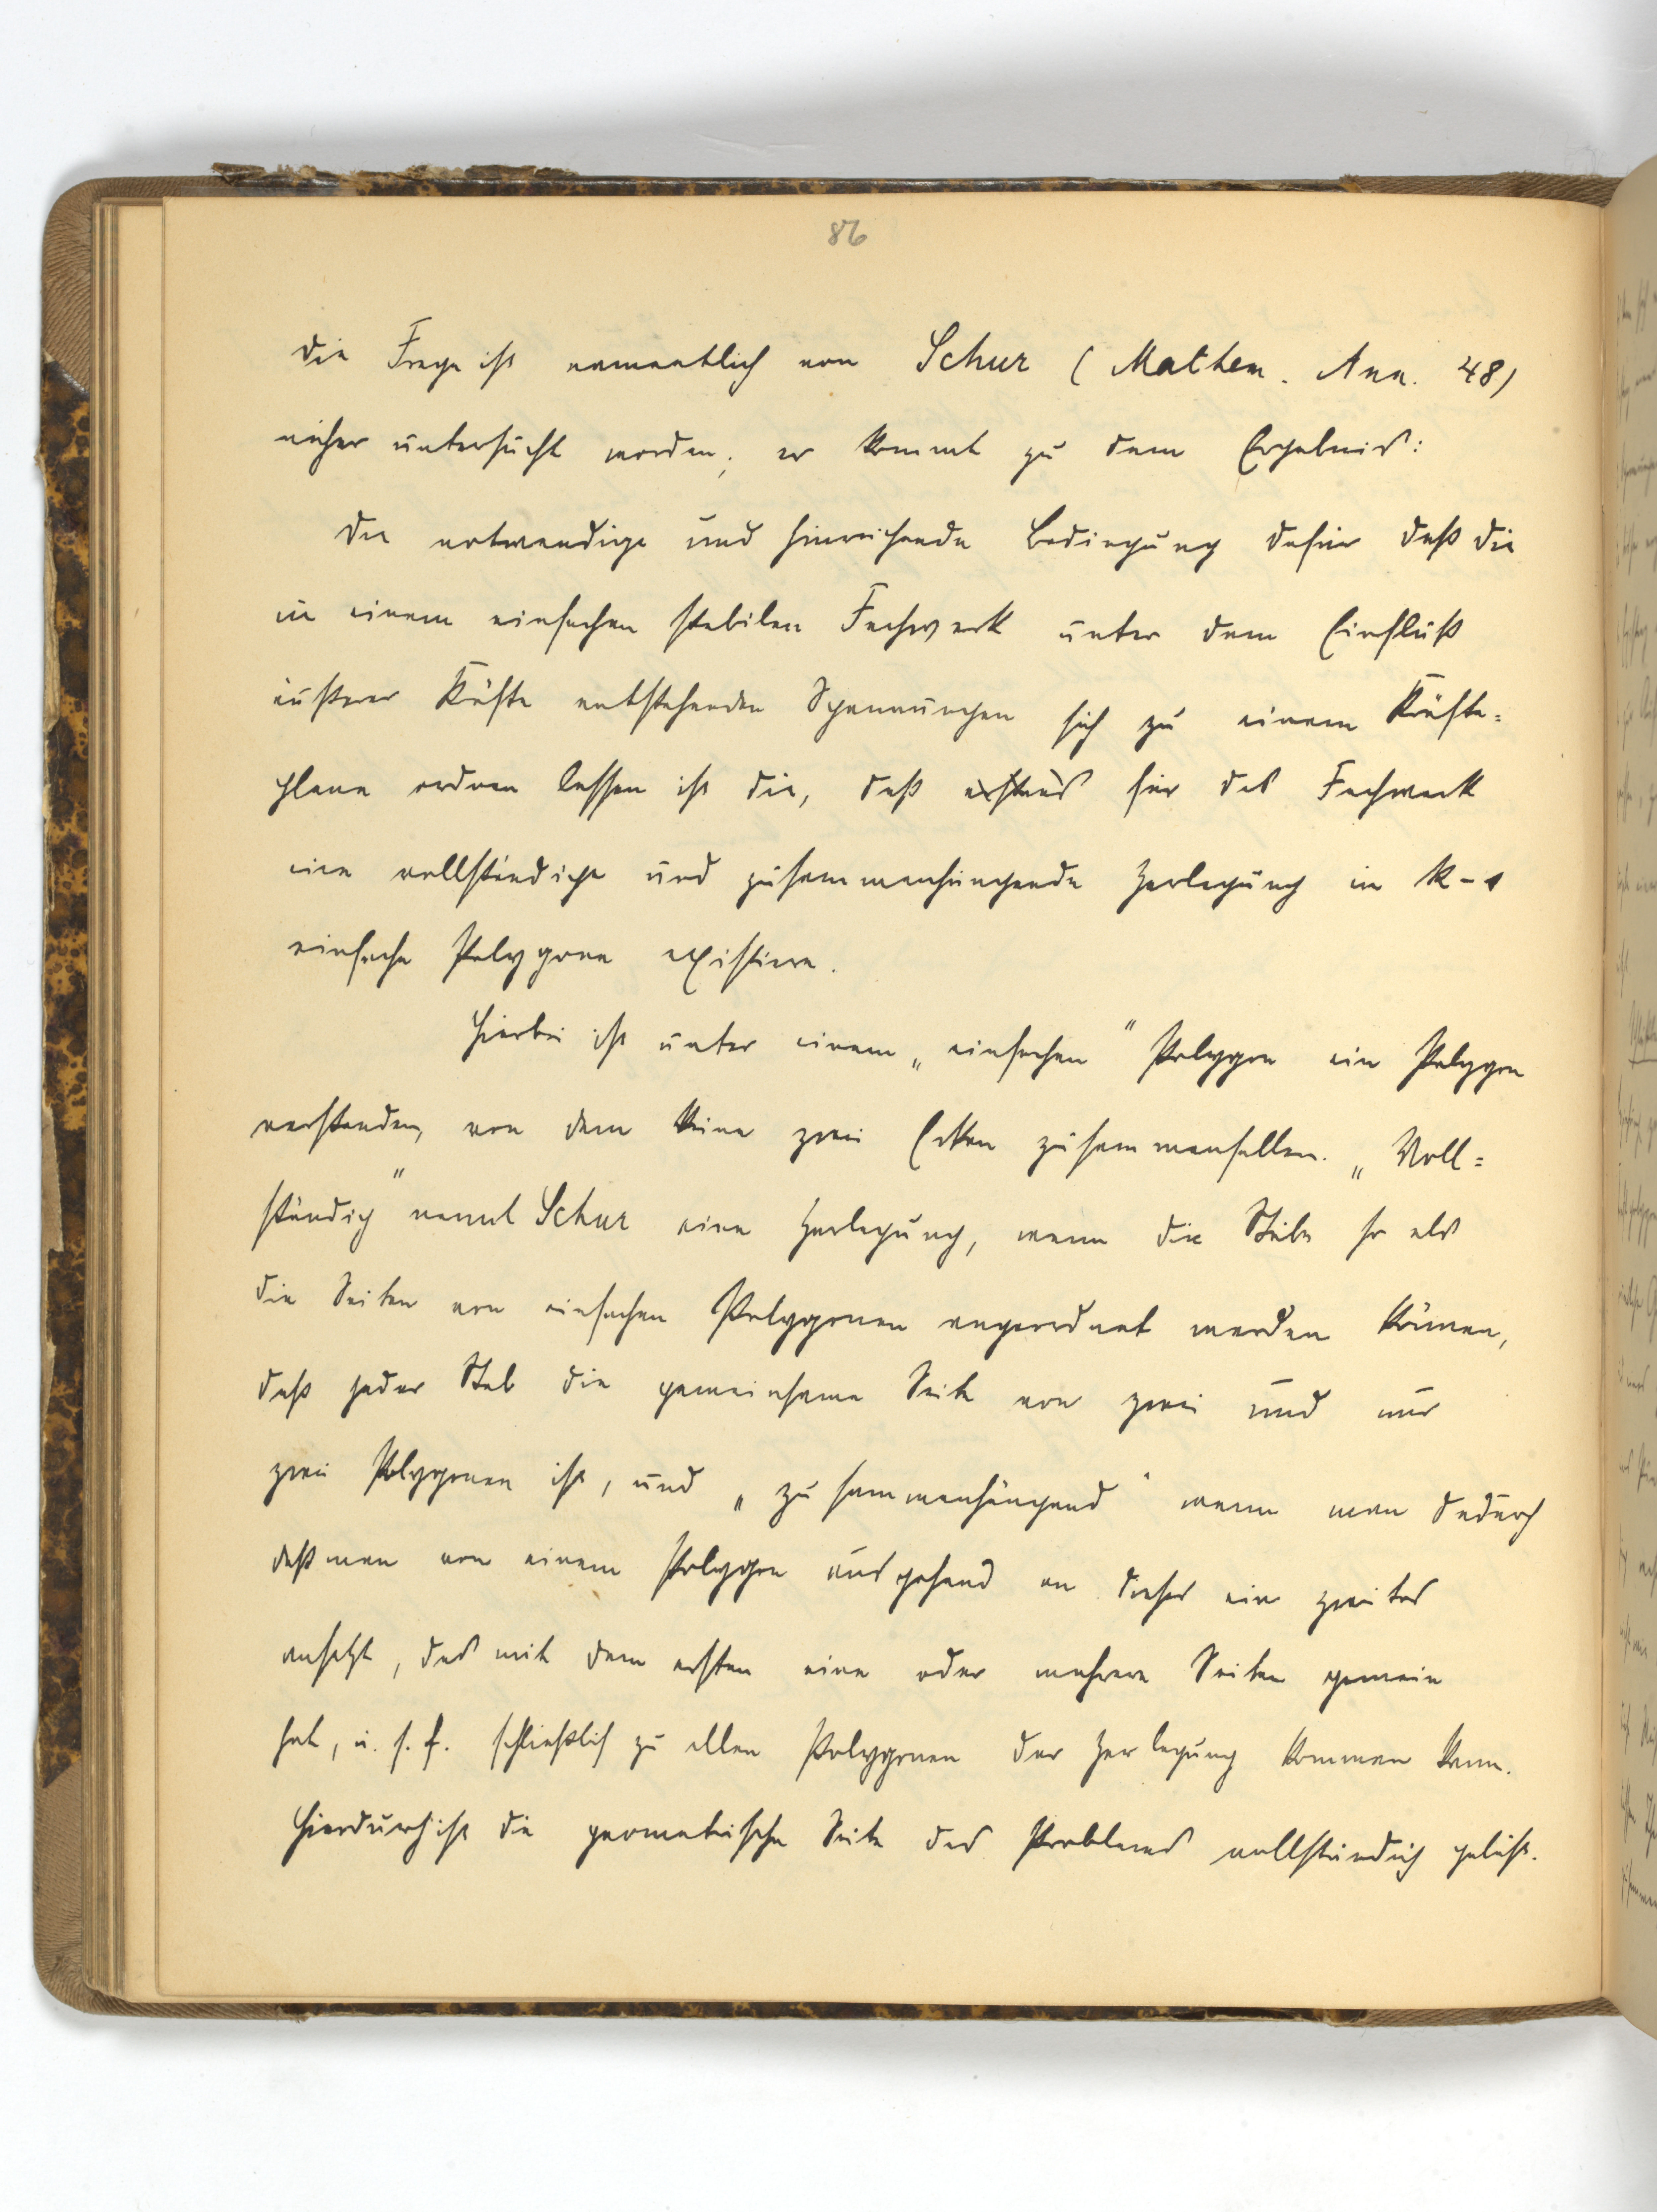 86
Die Frage ist namentlich von Schur (Mathem. Ann. 48)
näher untersucht worden; er kommt zu dem Ergebnis:
Die notwendige und hinreichende Bedingung dafür daß die
in einem einfachen stabilen Fachwerk unter dem Einfluß
äußerer Kräfte entstehenden Spannungen sich zu einem Kräfte=
plane ordnen lassen ist die, daß für das Fachwerk
eine vollständige und zusammenhängende Zerlegung in k-1
einfache Polygone existiere.
Hierbei ist unter einem „einfachen" Polygon ein Polygon
verstanden, von dem keine zwei Ecken zusammenfallen. „Voll=
ständig" nennt Schur eine Zerlegung, wenn die Stäbe so als
die Seiten von einfachen Polygonen angeordnet werden können,
daß jeder Stab die gemeinsame Seite von zwei und nur
zwei Polygonen ist, und „zusammenhängend" wenn man dadurch
daß man von einem Polygon ausgehend an dieses ein zweites
ansetzt, das mit dem ersten eine oder mehrere Seiten gemein
hat, u. s. f. schließlich zu allen Polygonen der Zerlegung kommen kann.
Hierdurch ist die geometrische Seite des Problems vollständig gelöst.